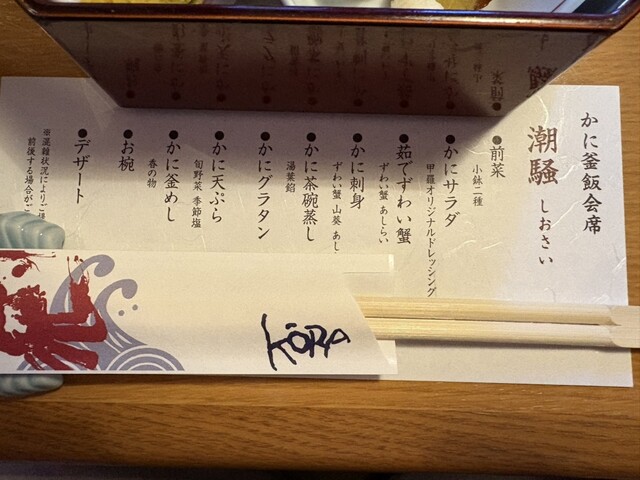 かに釜飯会席
潮騒 しおさい
●前菜
小鉢二種
●かにサラダ
甲羅オリジナルドレッシング
●茹でずわい蟹
ずわい蟹 あしらい
●かに刺身
ずわい蟹 山葵 あし
●かに茶碗蒸し
湯葉餡
●かにグラタン
●かに天ぷら
旬野菜 季節塩
●かに釜めし
香の物
●お椀
●デザート
※混雑状況により
前後する場合が
KŌRA